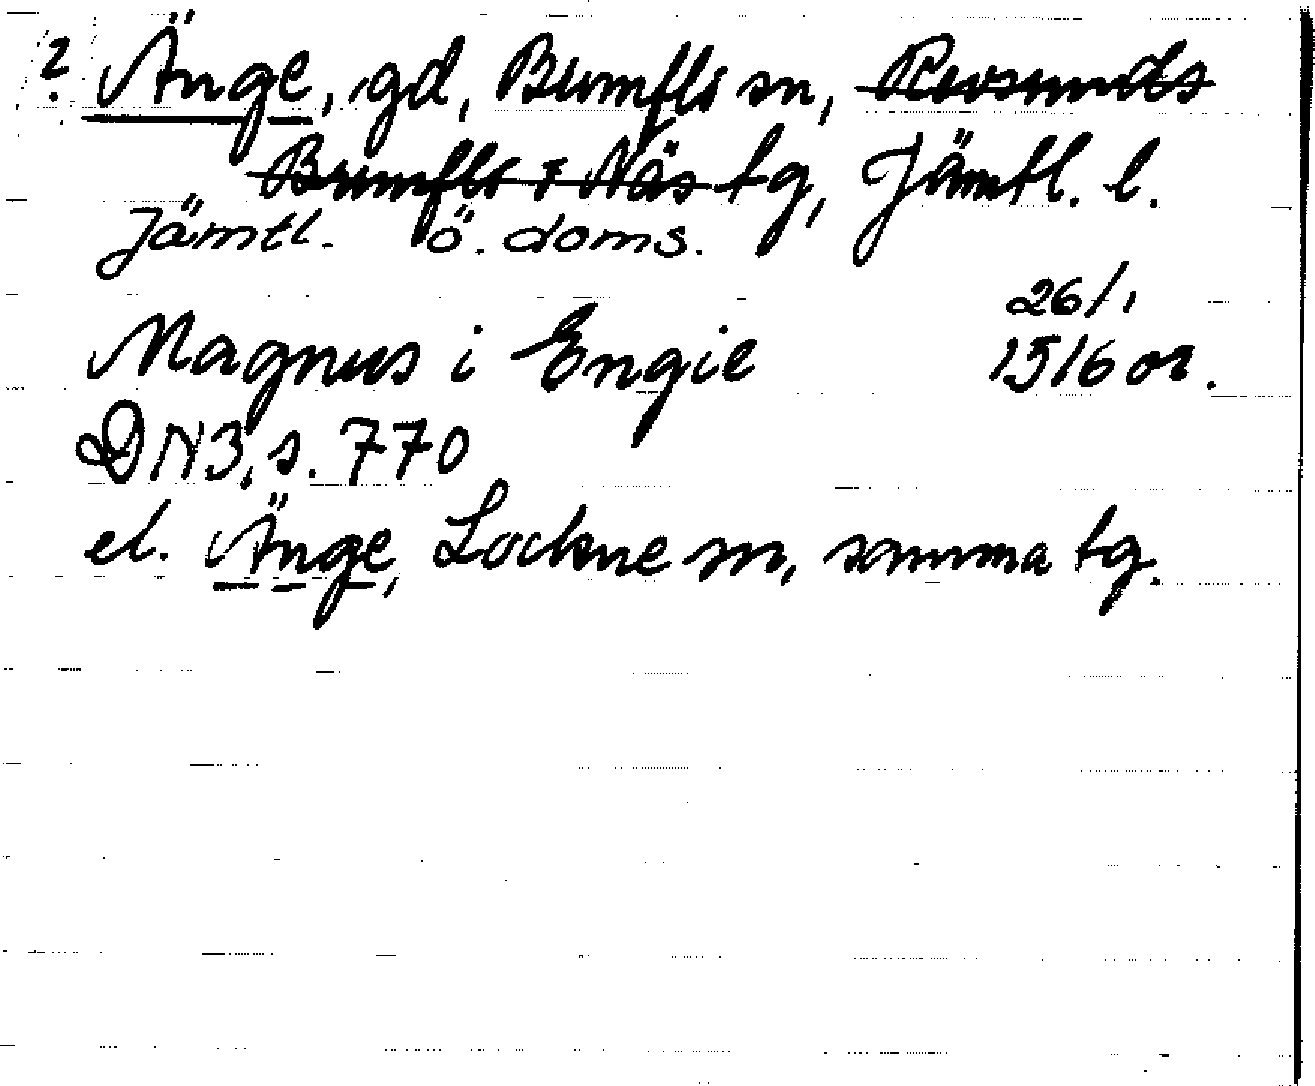 ? Änge, gd, Brunflo sn, Revsunds
Brunflo o Näs tg, Jämtl. l.
Jämtl. Ö. doms.
26/1
Magnus i Engie 1516 or.
DN3, s. 770
el. Änge, Lockne sn, samma tg.